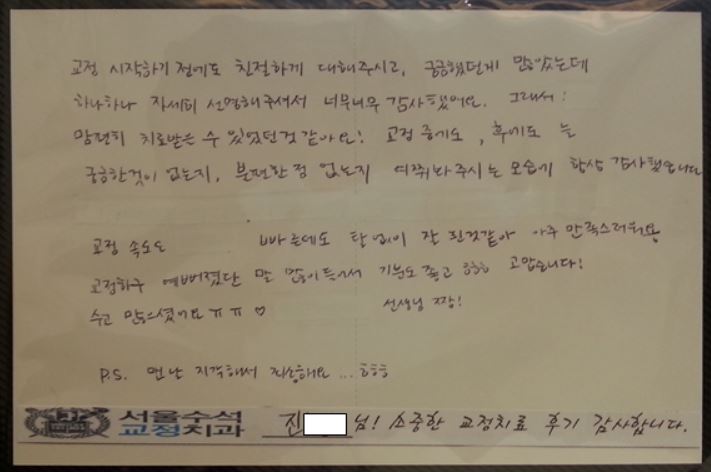 교정 시작하기 전에도 친절하게 대해주시고, 궁금했던게 많았는데
하나하나 자세히 설명해주셔서 너무너무 감사했어요. 그래서
맘편히 치료받은 수 있었던것 같아요! 교정 중에도, 후에도 늘
궁금한것이 없는지, 불편한 점 없는지 여쭤봐주시는 모습에 항상 감사했습니다
교정 속도도 빠른데도 탈 없이 잘 된것같아 아주 만족스러워용
교정하구 예뻐졌단 말 많이 들어서 기분도 좋고 ㅎㅎㅎ 고맙습니다!
수고 많으셨어요 ㅠㅠ ♡ 선생님 짱!
P.S. 맨날 지각해서 죄송해요 ... ㅎㅎㅎ
서울수석
교정치과
진 님! 소중한 교정치료 후기 감사합니다.